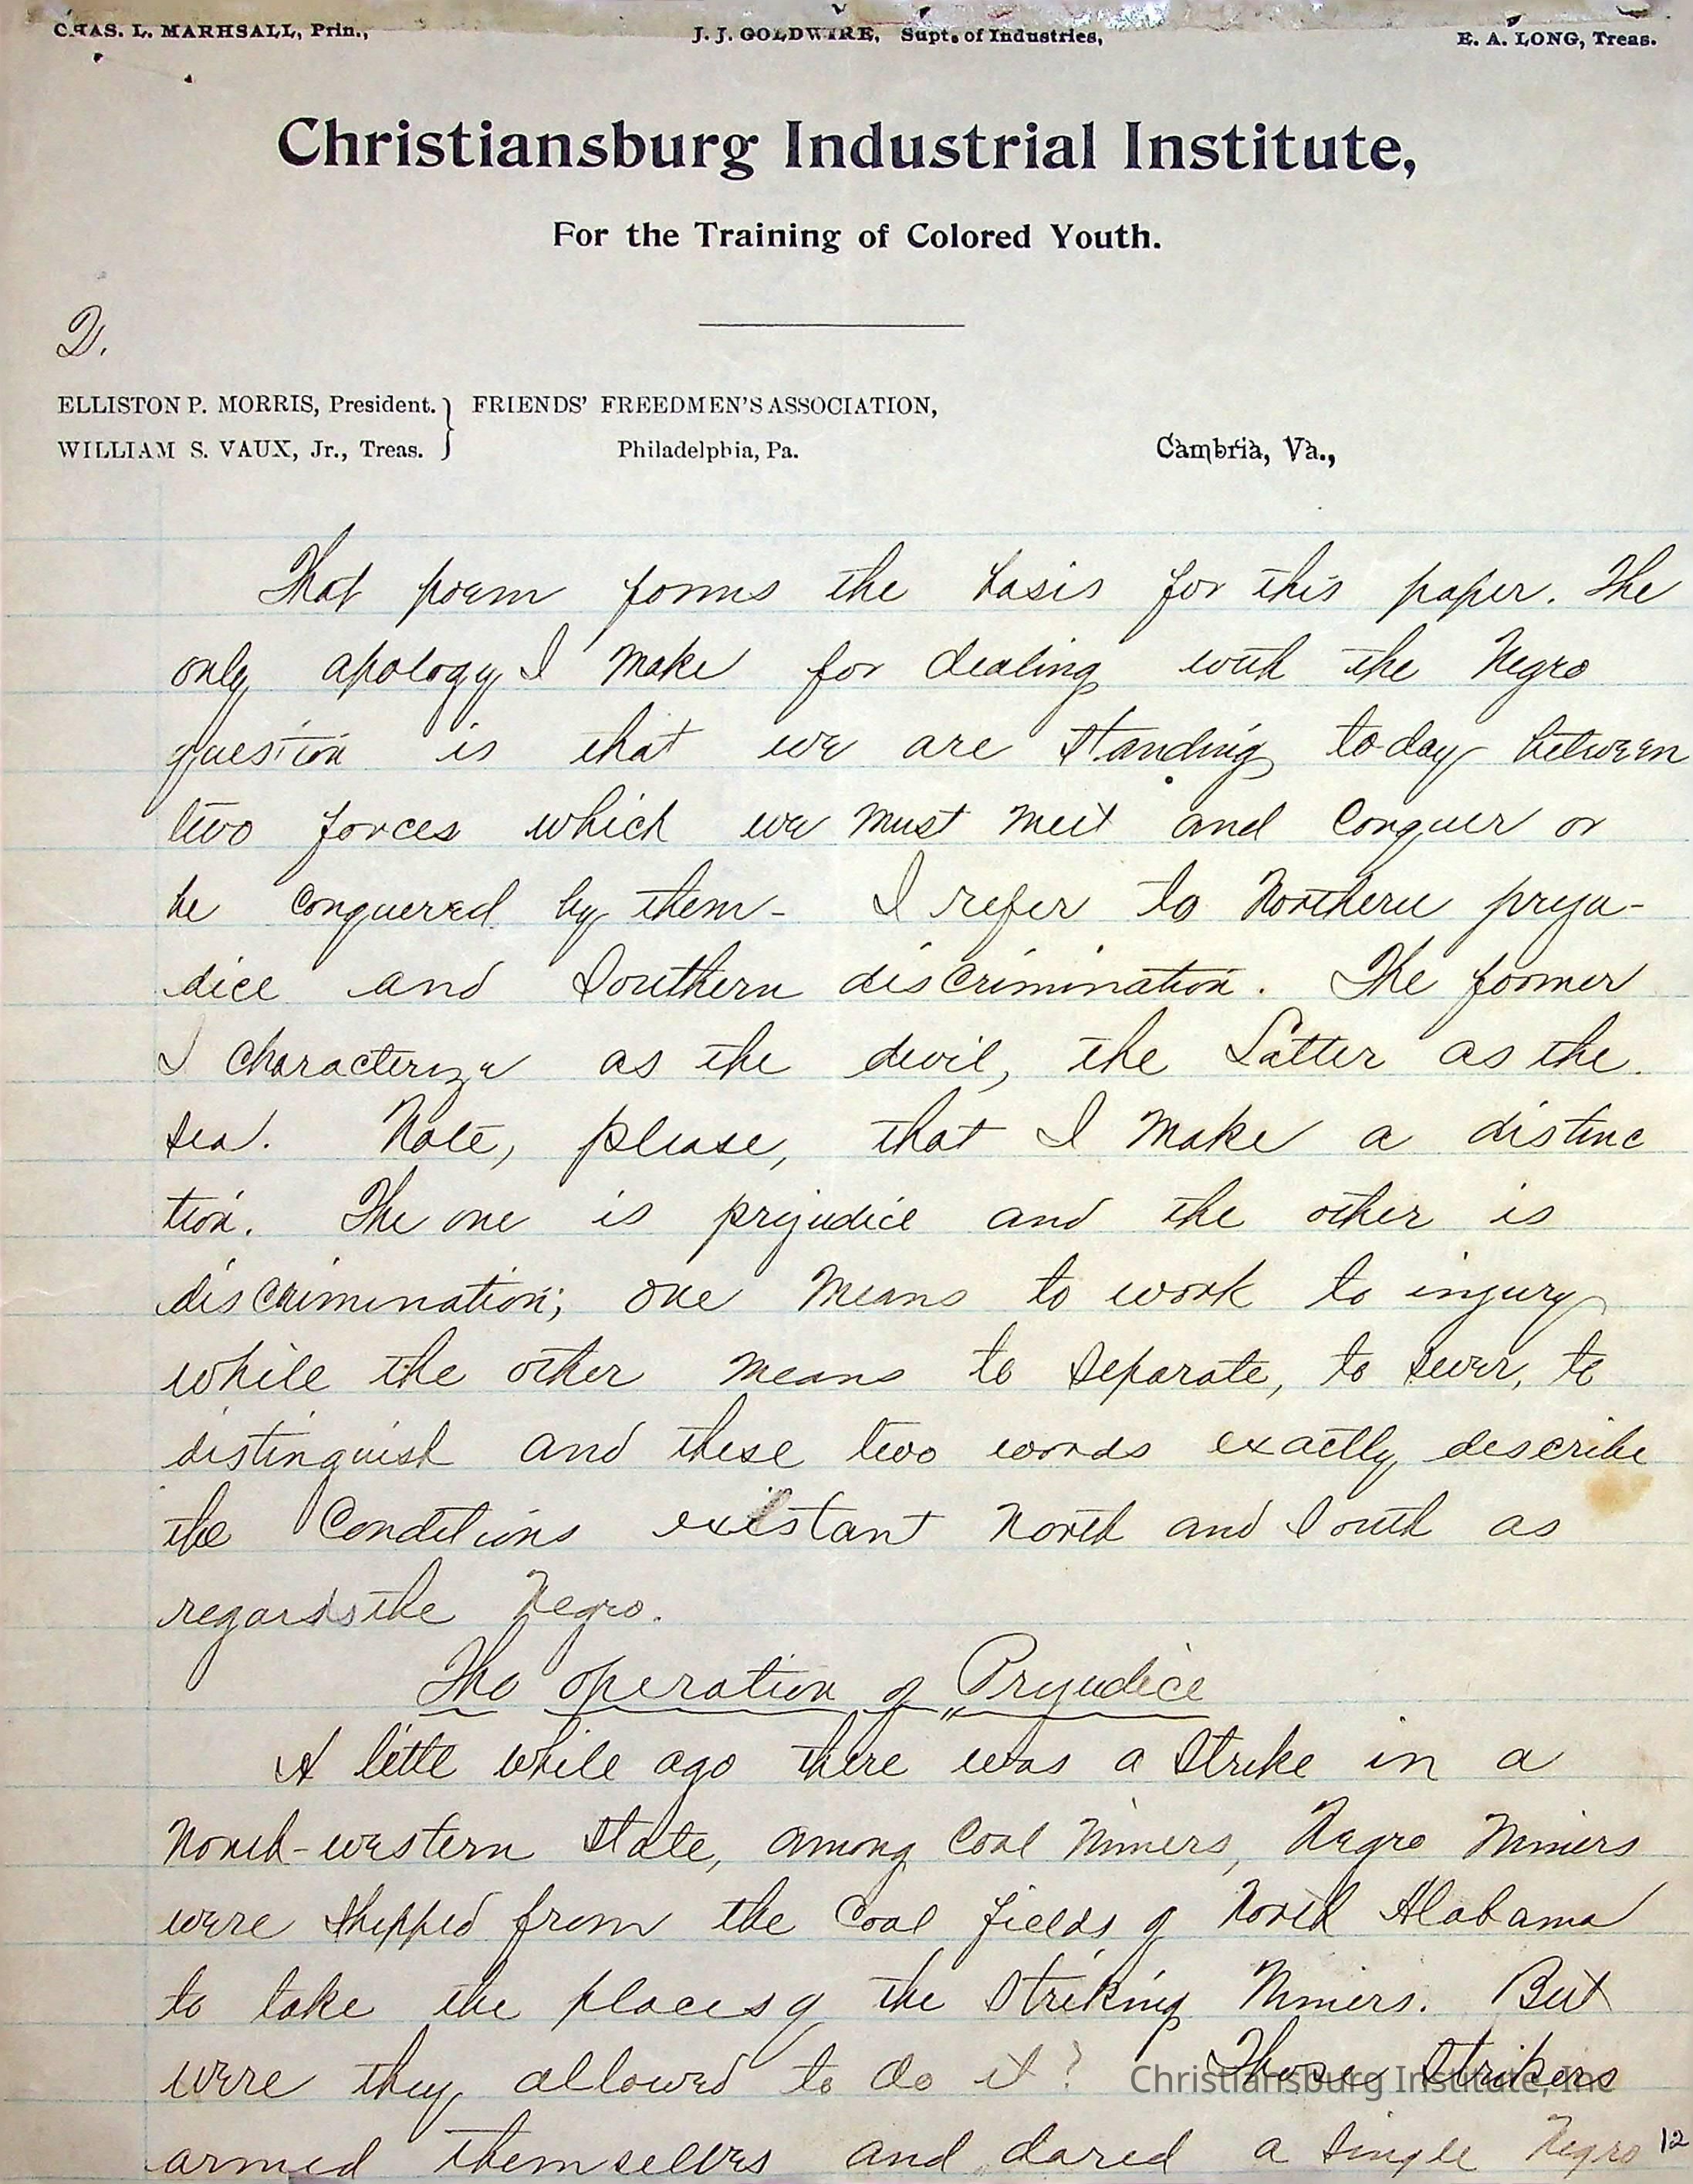 CHAS. L. MARHSALL, Prin., J. J. GOLDWIRE, Supt. of Industries, E. A. LONG, Treas.
Christiansburg Industrial Institute,
For the Training of Colored Youth.
2.
ELLISTON P. MORRIS, President. } FRIENDS' FREEDMEN'S ASSOCIATION,
WILLIAM S. VAUX, Jr., Treas. Philadelphia, Pa. Cambria, Va.,
That poem forms the basis for this paper. The
only apology I make for dealing with the Negro
question is that we are standing to-day between
two forces which we must meet and conquer or
be conquered by them- I refer to Northern preju-
dice and Southern discrimination. The former
I characterize as the devil, the Latter as the
sea. Note, please, that I make a distinc
tion. The one is prejudice and the other is
discrimination; one means to work to injury
while the other means to separate, to sever, to
distinguish and these two words exactly describe
the Conditions existant North and South as
regards the Negro.
The operation of Prejudice
A little while ago there was a strike in a
North-western State, among Coal Miners, Negro Miners
were shipped from the Coal fields of North Alabama
to take the places of the striking Miners. But
were they allowed to do it? Those Strikers
Christiansburg Institute, Inc
armed themselves and dared a single Negro 12